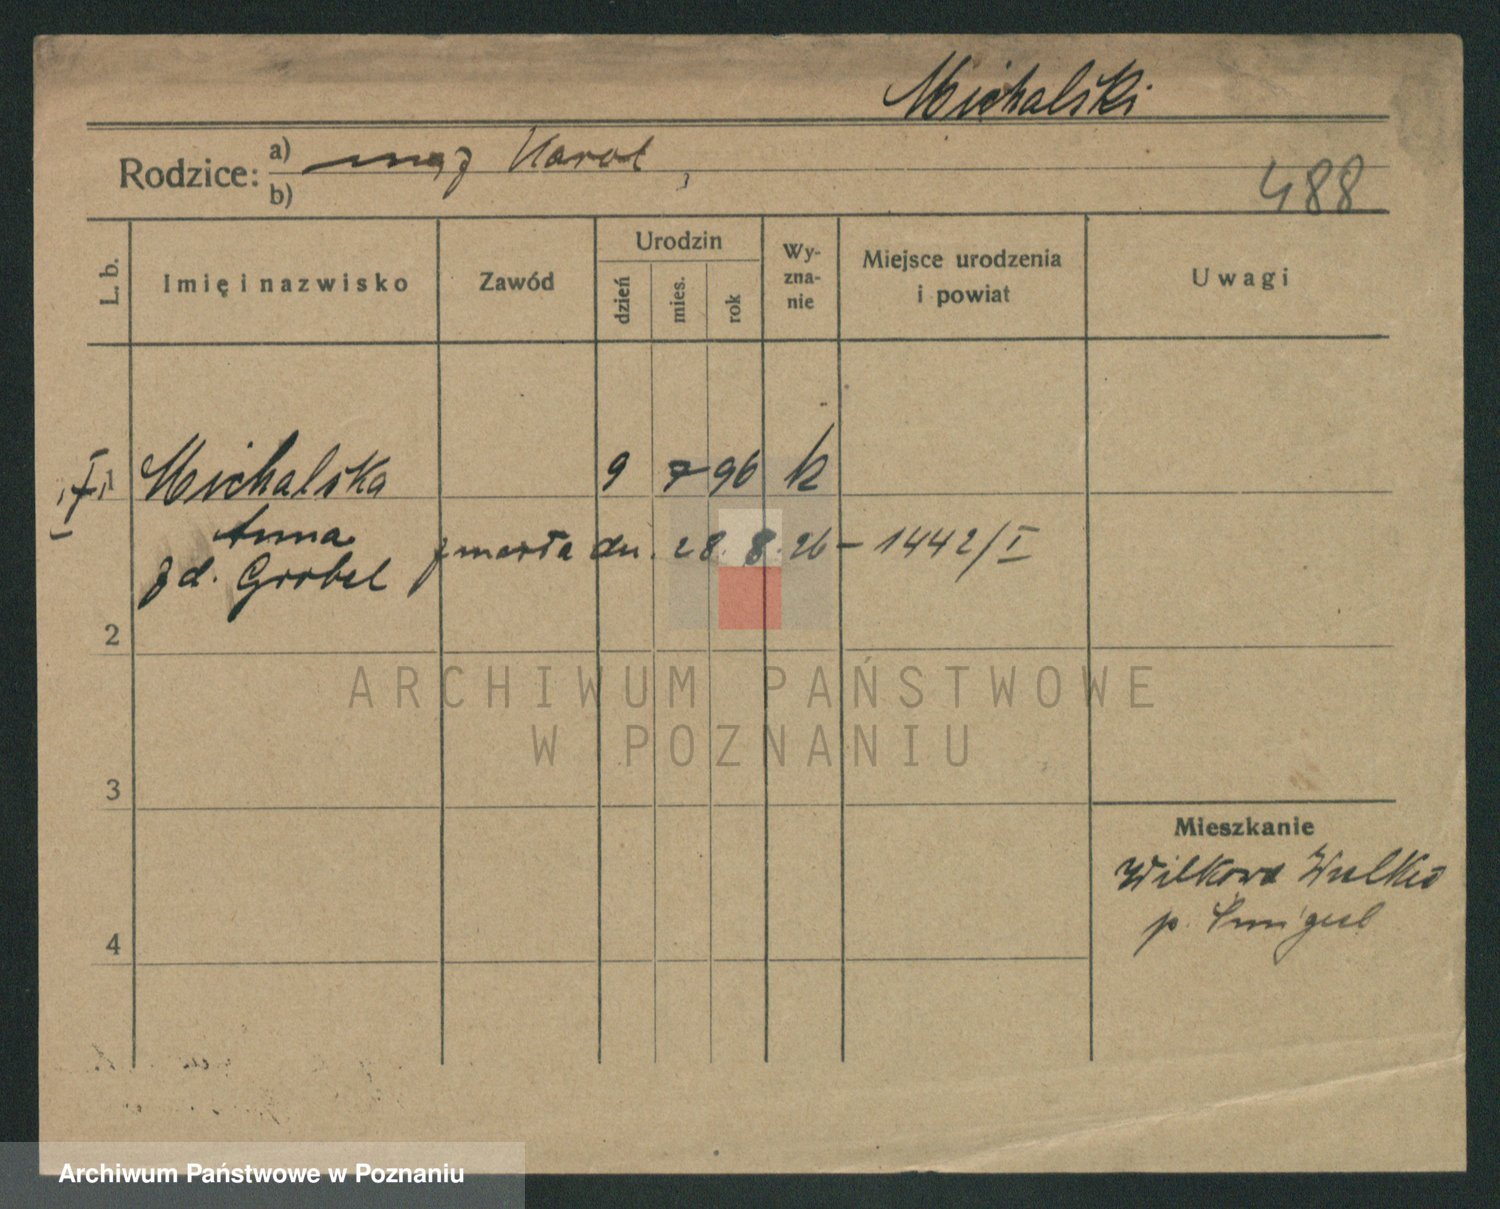 Michalski
Rodzice: a) mąż Karol
b)
488
L. b. Imię i nazwisko Zawód Urodzin dzień mies. rok Wy-zna-nie Miejsce urodzenia i powiat Uwagi
1 Michalska 9 7 96 k
Anna zmarła dn. 28. 8. 26 – 1442/I
zd. Grobel
2
ARCHIWUM PAŃSTWOWE
W POZNANIU
3
Mieszkanie
Wilkowa
p. Śmigiel
4
Archiwum Państwowe w Poznaniu